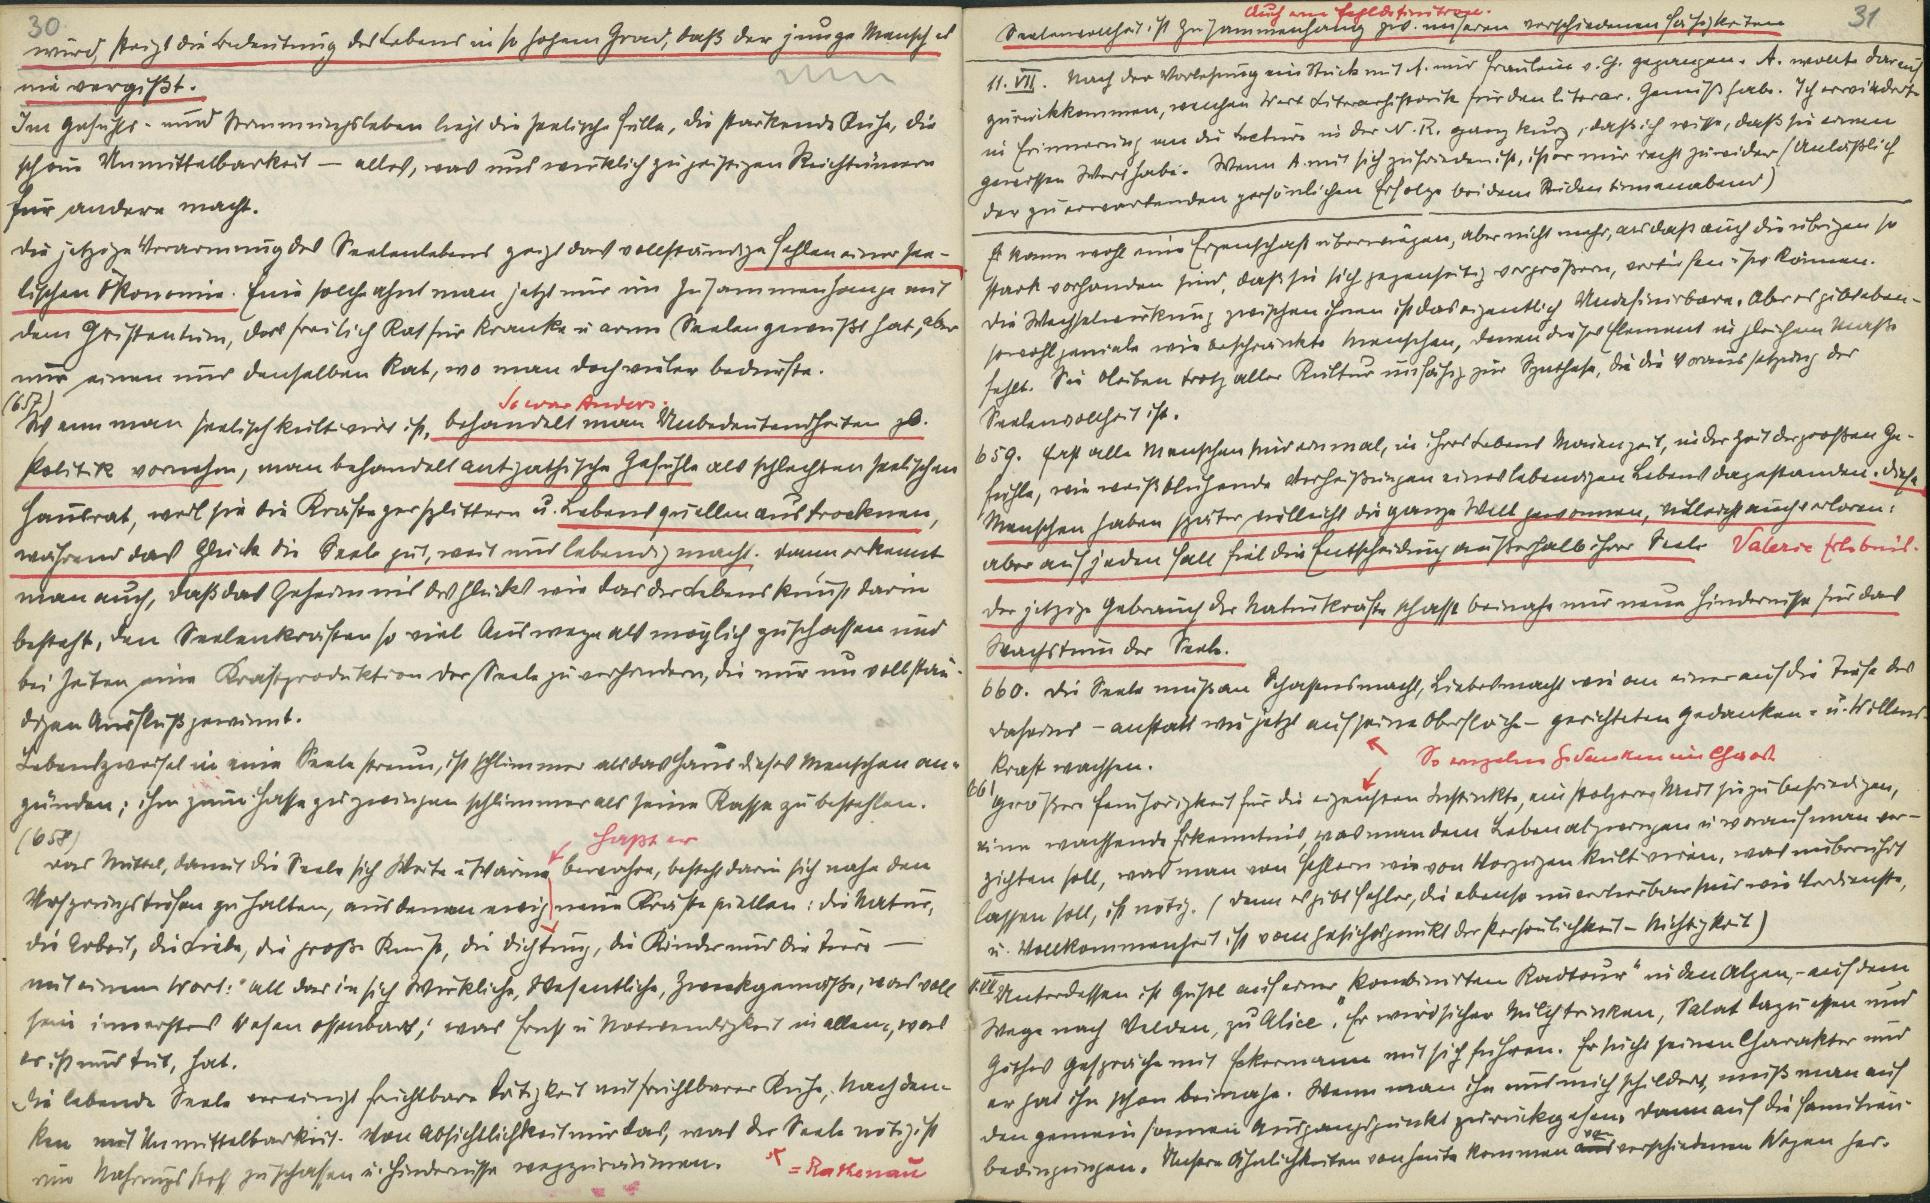 30
wird, steigt die Bedeutung des Lebens in so hohem Grad, daß der junge Mensch es
nie vergißt.
Im Gefühls- und Stimmungsleben liegt die seelische Fülle, die stärkende Ruhe, die
schöne Unmittelbarkeit — alles, was uns wirklich zu geistigen Reichtümern
für andere macht.
Die jetzige Verarmung des Seelenlebens zeigt das vollständige Fehlen einer see-
lischen Ökonomie. Eine solche ahnt man jetzt nur im Zusammenhange mit
dem Christentum, das freilich Rat für kranke u arme Seelen gewußt hat, aber
nur einen und denselben Rat, wo man doch vieler bedürfte.
(657)
So war Anders.
Wenn man seelisch kultiviert ist, behandelt man Unbedeutendheiten zb.
Politik vornehm, man behandelt antipathische Gefühle als schlechten seelischen
Hausrat, weil sie die Kräfte zersplittern u. Lebensquellen austrocknen,
während das Glück die Seele gut, weit und lebendig macht. Dann erkennt
man auch, daß das Geheimnis des Glücks wie das der Lebenskunst darin
besteht, den Seelenkräften so viel Auswege als möglich zu schaffen und
bei Zeiten eine Kraftproduktion der Seele zu verhindern, die nur unvollstän-
digen Ausfluß gewinnt.
Lebenszweifel in eine Seele streun, ist schlimmer als das Haus dieses Menschen an-
zünden; ihn zum Hasse zu zwingen schlimmer als seine Kasse zu bestehlen.
(658)
haßt er
Das Mittel, damit die Seele sich Weite u Wärme bewahre, besteht darin sich nahe den
Ursprungstiefen zu halten, aus denen ewig neue Kräfte quellen: die Natur,
die Arbeit, die Liebe, die große Kunst, die Dichtung, die Kinder und die Tiere —
mit einem Wort: "all das in sich Wirkliche, Wesentliche, Zweckgemäße, was voll
sein innerstes Wesen offenbart; was Ernst u Notwendigkeit in allem, was
es ist und tut, hat.
Die lebende Seele vereinigt fruchtbare Tätigkeit mit fruchtbarer Ruhe, Nachden-
ken mit Unmittelbarkeit. Von Absichtlichkeit nur das, was der Seele nötig ist
um Nahrungsstoff zu schaffen u. Hindernisse wegzuräumen.
= Rathenau
31
Auch eine Fehldefinition.
Seelenvollheit ist Zusammenhang zw. unseren verschiedenen Fähigkeiten
11. VII. Nach der Vorlesung ein Stück mit A. und Fräulein v. G. gegangen. A. wollte darauf
zurückkommen, welchen Wert Literarhistorik für den literar. Genuß habe. Ich erwiderte
in Erinnerung an die Lecture in der N. R. ganz kurz, daß ich wisse, daß sie einen
gewissen Wert habe. Wenn A. mit sich zufrieden ist, ist er mir recht zuwider (Anläßlich
der zu erwartenden persönlichen Erfolge bei dem Studentinnenabend)
Es kann wohl eine Eigenschaft überwiegen, aber nicht mehr, als daß auch die übrigen so
stark vorhanden sind, daß sie sich gegenseitig vergrößern, vertiefen usw können.
Die Wechselwirkung zwischen ihnen ist das eigentlich Undefinirbare. Aber es gibt eben-
sowohl geniale wie beschränkte Menschen, denen dieses Element in gleichem Maße
fehlt. Sie bleiben trotz aller Kultur unfähig zur Synthese, die die Voraussetzung der
Seelenvollheit ist.
659. Fast alle Menschen sind einmal, in ihres Lebens Maienzeit, in der Zeit der großen Ge-
fühle, wie weißblühende Verheißungen eines lebendigen Lebens dagestanden. Diese
Menschen haben später vielleicht die ganze Welt gewonnen, vielleicht auch verloren:
aber auf jeden Fall fiel die Entscheidung außerhalb ihrer Seele Valerie Erlebnis.
Der jetzige Gebrauch der Naturkräfte schafft beinahe nur neue Hindernisse für das
Wachstum der Seele.
660. Die Seele muß an Schaffensmacht, Liebesmacht wie an einer auf die Tiefe des
Daseins — anstatt wie jetzt auf seine Oberfläche — gerichteten Gedanken- u. Willens-
kraft wachsen.
So einzelne Gedanken im Chaos
661 Größere Feinhörigkeit für die eigensten Instinkte, ein stolzerer Mut sie zu befriedigen,
eine wachsende Erkenntnis, was man dem Leben abzwingen u worauf man ver-
zichten soll, was man von Fehlern wie von Vorzügen kultivieren, was unberührt
lassen soll, ist nötig. (Denn es gibt Fehler, die ebenso unverlierbar sind wie Verdienste,
u. Vollkommenheit ist vom Gesichtspunkt der Persönlichkeit — Nichtigkeit)
Unterdessen ist Gustl auf einer "kombinirten Radtour" in den Alpen, — auf dem
Wege nach Velden, zu Alice. Er wird sicher Milch trinken, Salat dazu essen und
Göthes Gespräche mit Eckermann mit sich führen. Er sucht seinen Charakter und
er hat ihn schon beinahe. Wenn man ihn und mich schildert, muß man auf
den gemeinsamen Ausgangspunkt zurückgehen, dann auf die Familien-
bedingungen. Unsere Ähnlichkeiten von heute kommen von verschiedenen Wegen her.